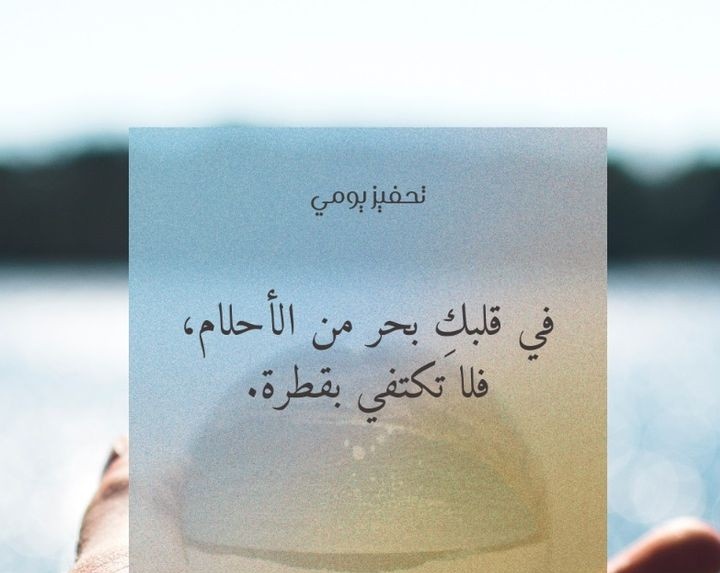 تحفيز يومي
في قلبكِ بحر من الأحلام،
فلا تكتفي بقطرة.